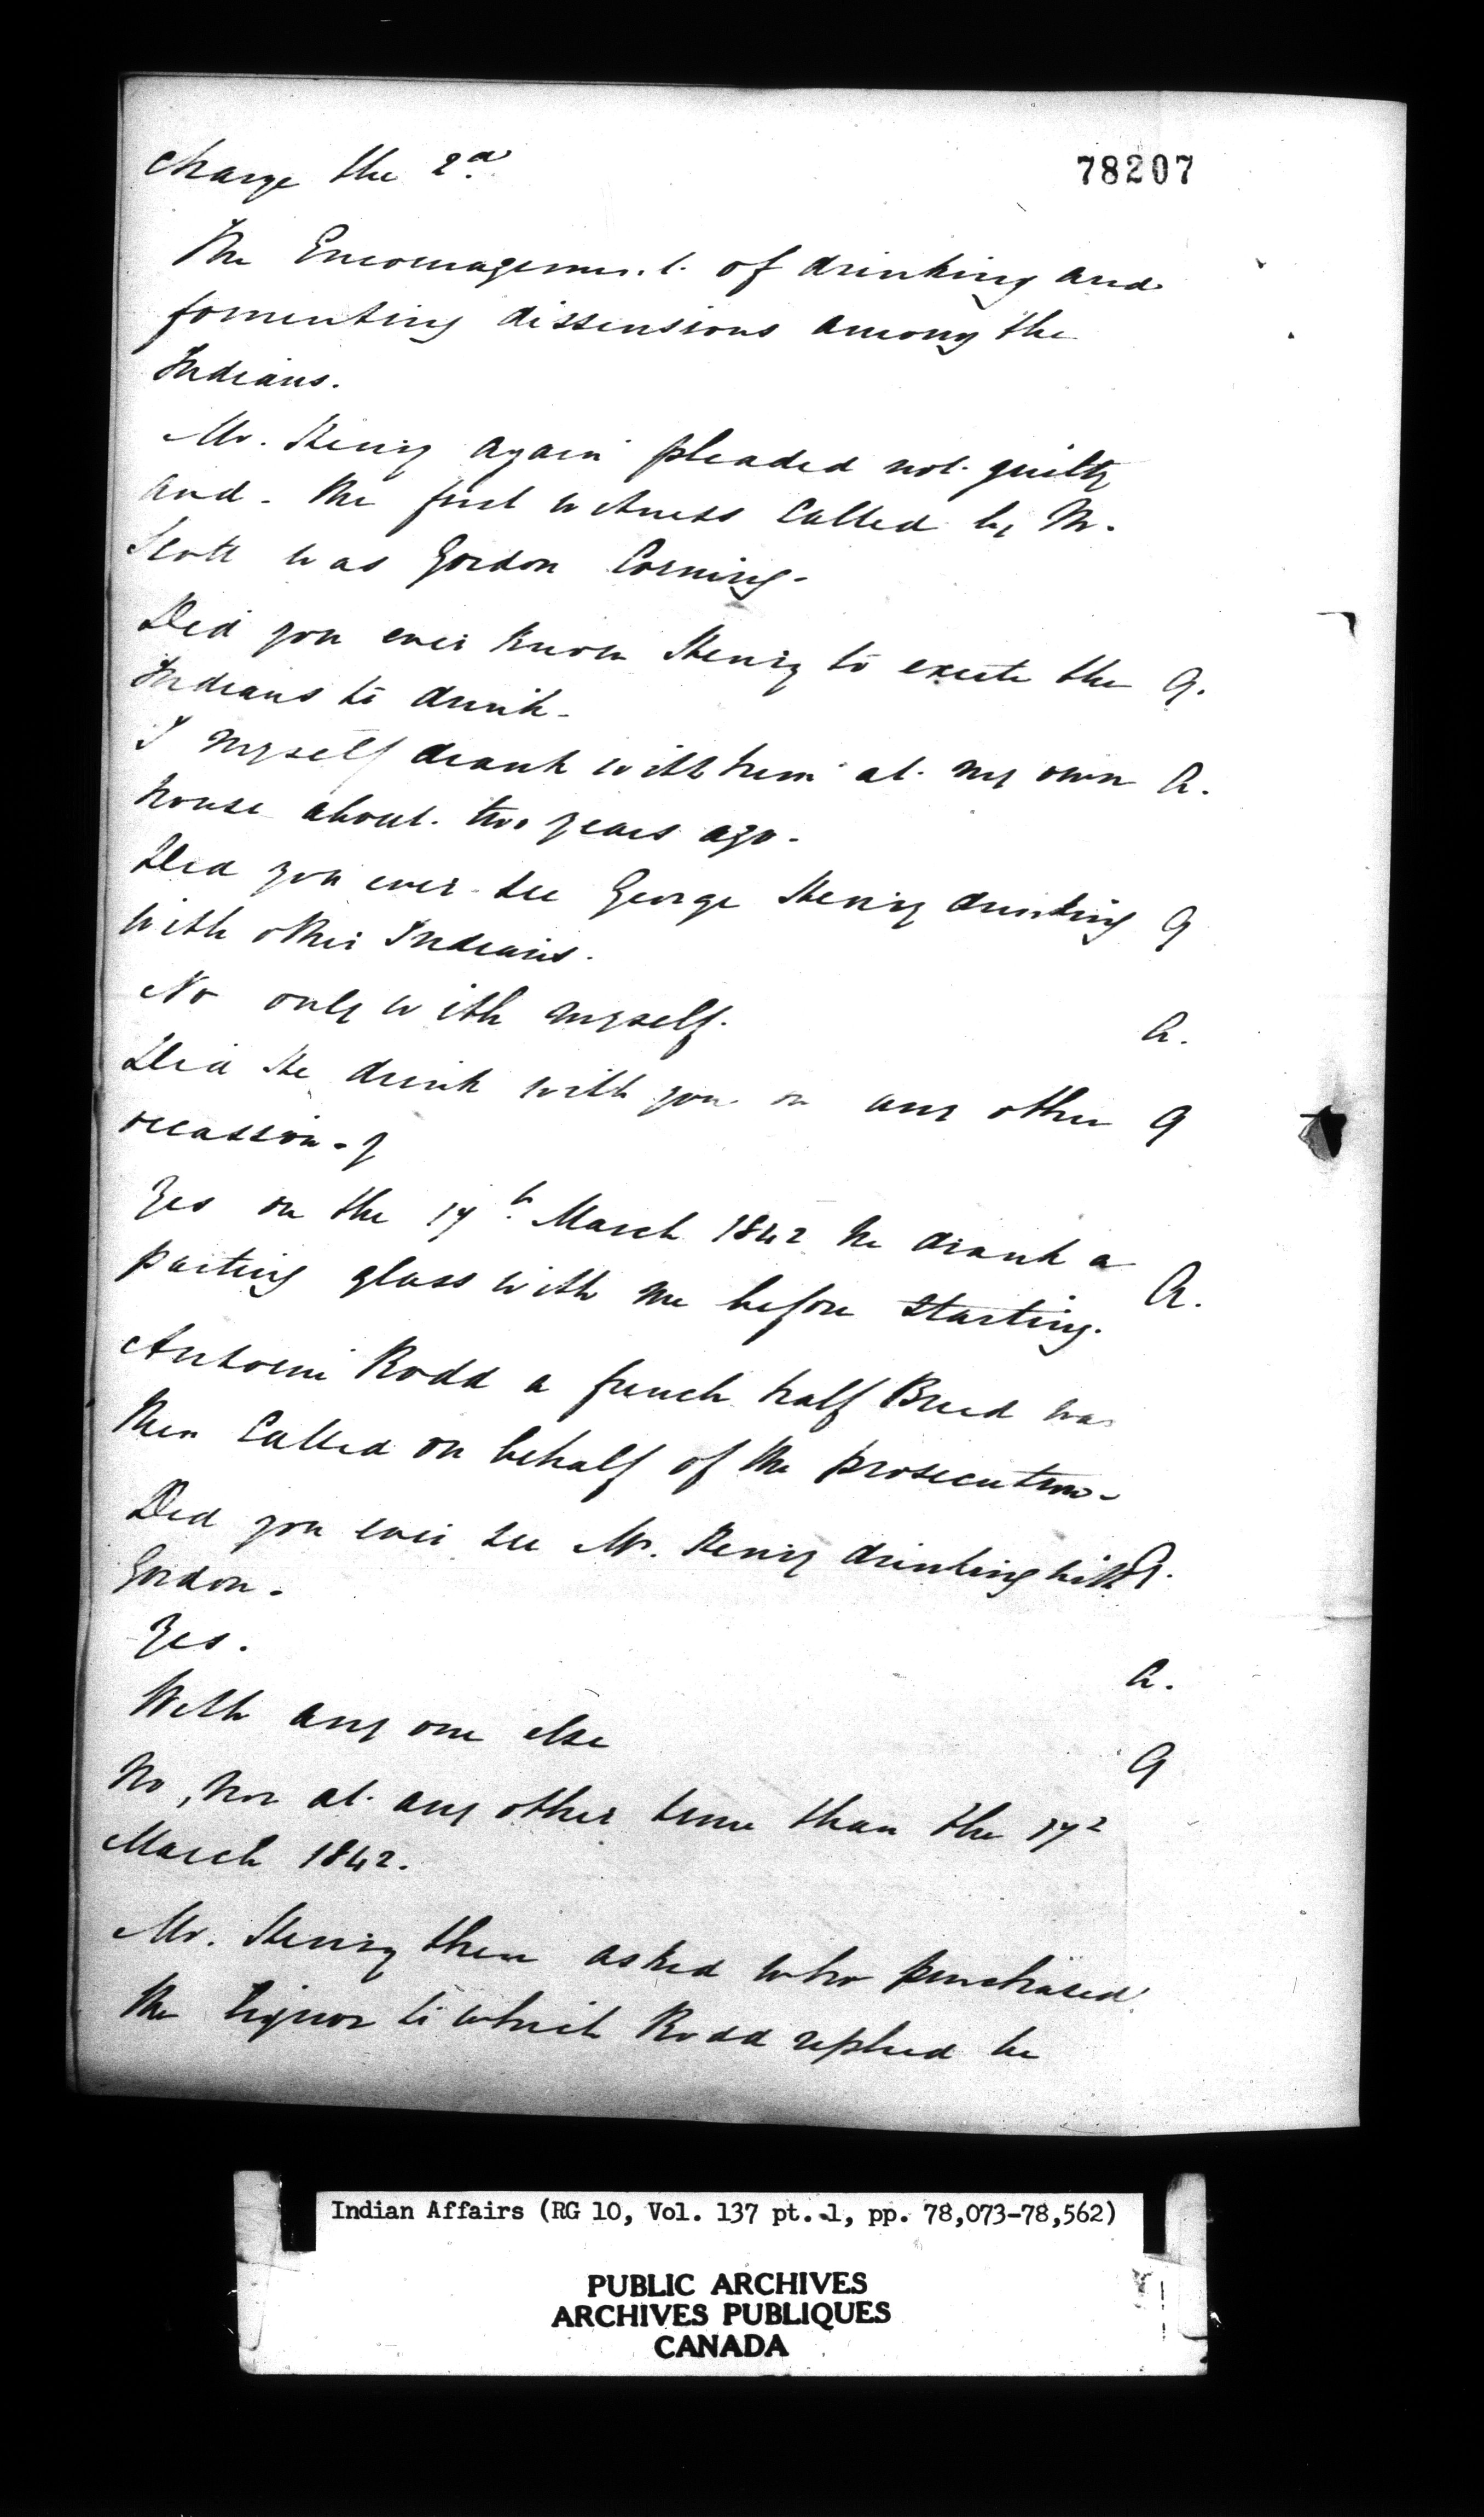 78207
Charge the 2d.
The Encouragement of drinking and
fomenting dissensions among the
Indians.
Mr. Henry again pleaded not guilty
and the first witness Called by Mr.
Scott was Gordon Corning-
Did you ever Know Henry to excite the Q.
Indians to drink-
I myself drank with him at my own A.
house about two years ago.
Did you ever see George Henry drinking Q
with other Indians.
No only with myself. A.
Did He drink with you on any other Q
occassion-?
Yes on the 17th. March 1842 he drank a
parting glass with me before Starting. A.
Antoine Rodd a french half Breed was
then Called on behalf of the prosecution-
Did you ever see Mr. Henry drinking with Q.
Gordon.
Yes. A.
With any one else Q
No, nor at any other time than the 17
March 1842.
Mr. Henry then asked who purchased
the liquor to which Rodd replied he
Indian Affairs (RG 10, Vol. 137 pt. 1, pp. 78,073-78,562)
PUBLIC ARCHIVES
ARCHIVES PUBLIQUES
CANADA